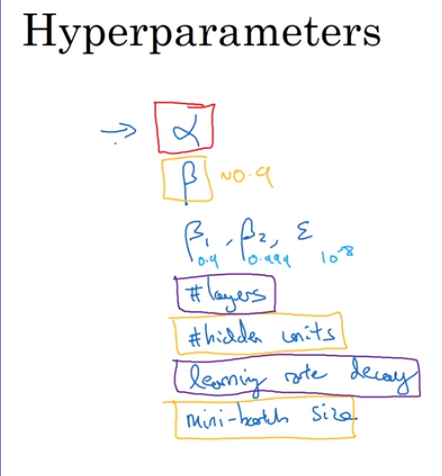 Hyperparameters
α
β ~0.9
β₁, β₂, ε
0.9 0.999 10⁻⁸
#layers
#hidden units
learning rate decay
mini-batch size